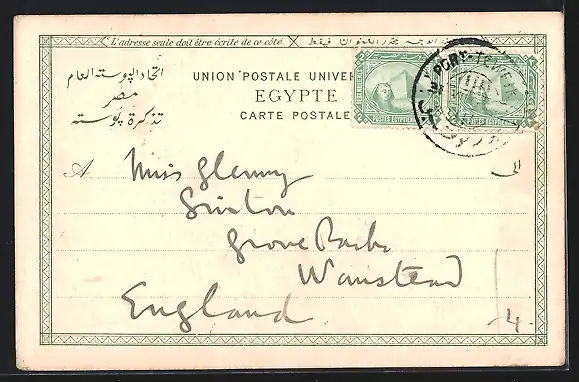 L'adresse seule doit être écrite de ce côté.
اتحاد البوسته العام
مصر
تذكرة بوسته
UNION POSTALE UNIVER
EGYPTE
CARTE POSTALE
POSTES EGYPTIENNES
POSTES EGYPTIENNES
PORT-TEWFIK
A
الى
Miss Glenny
Grove Park
Wanstead
England
4